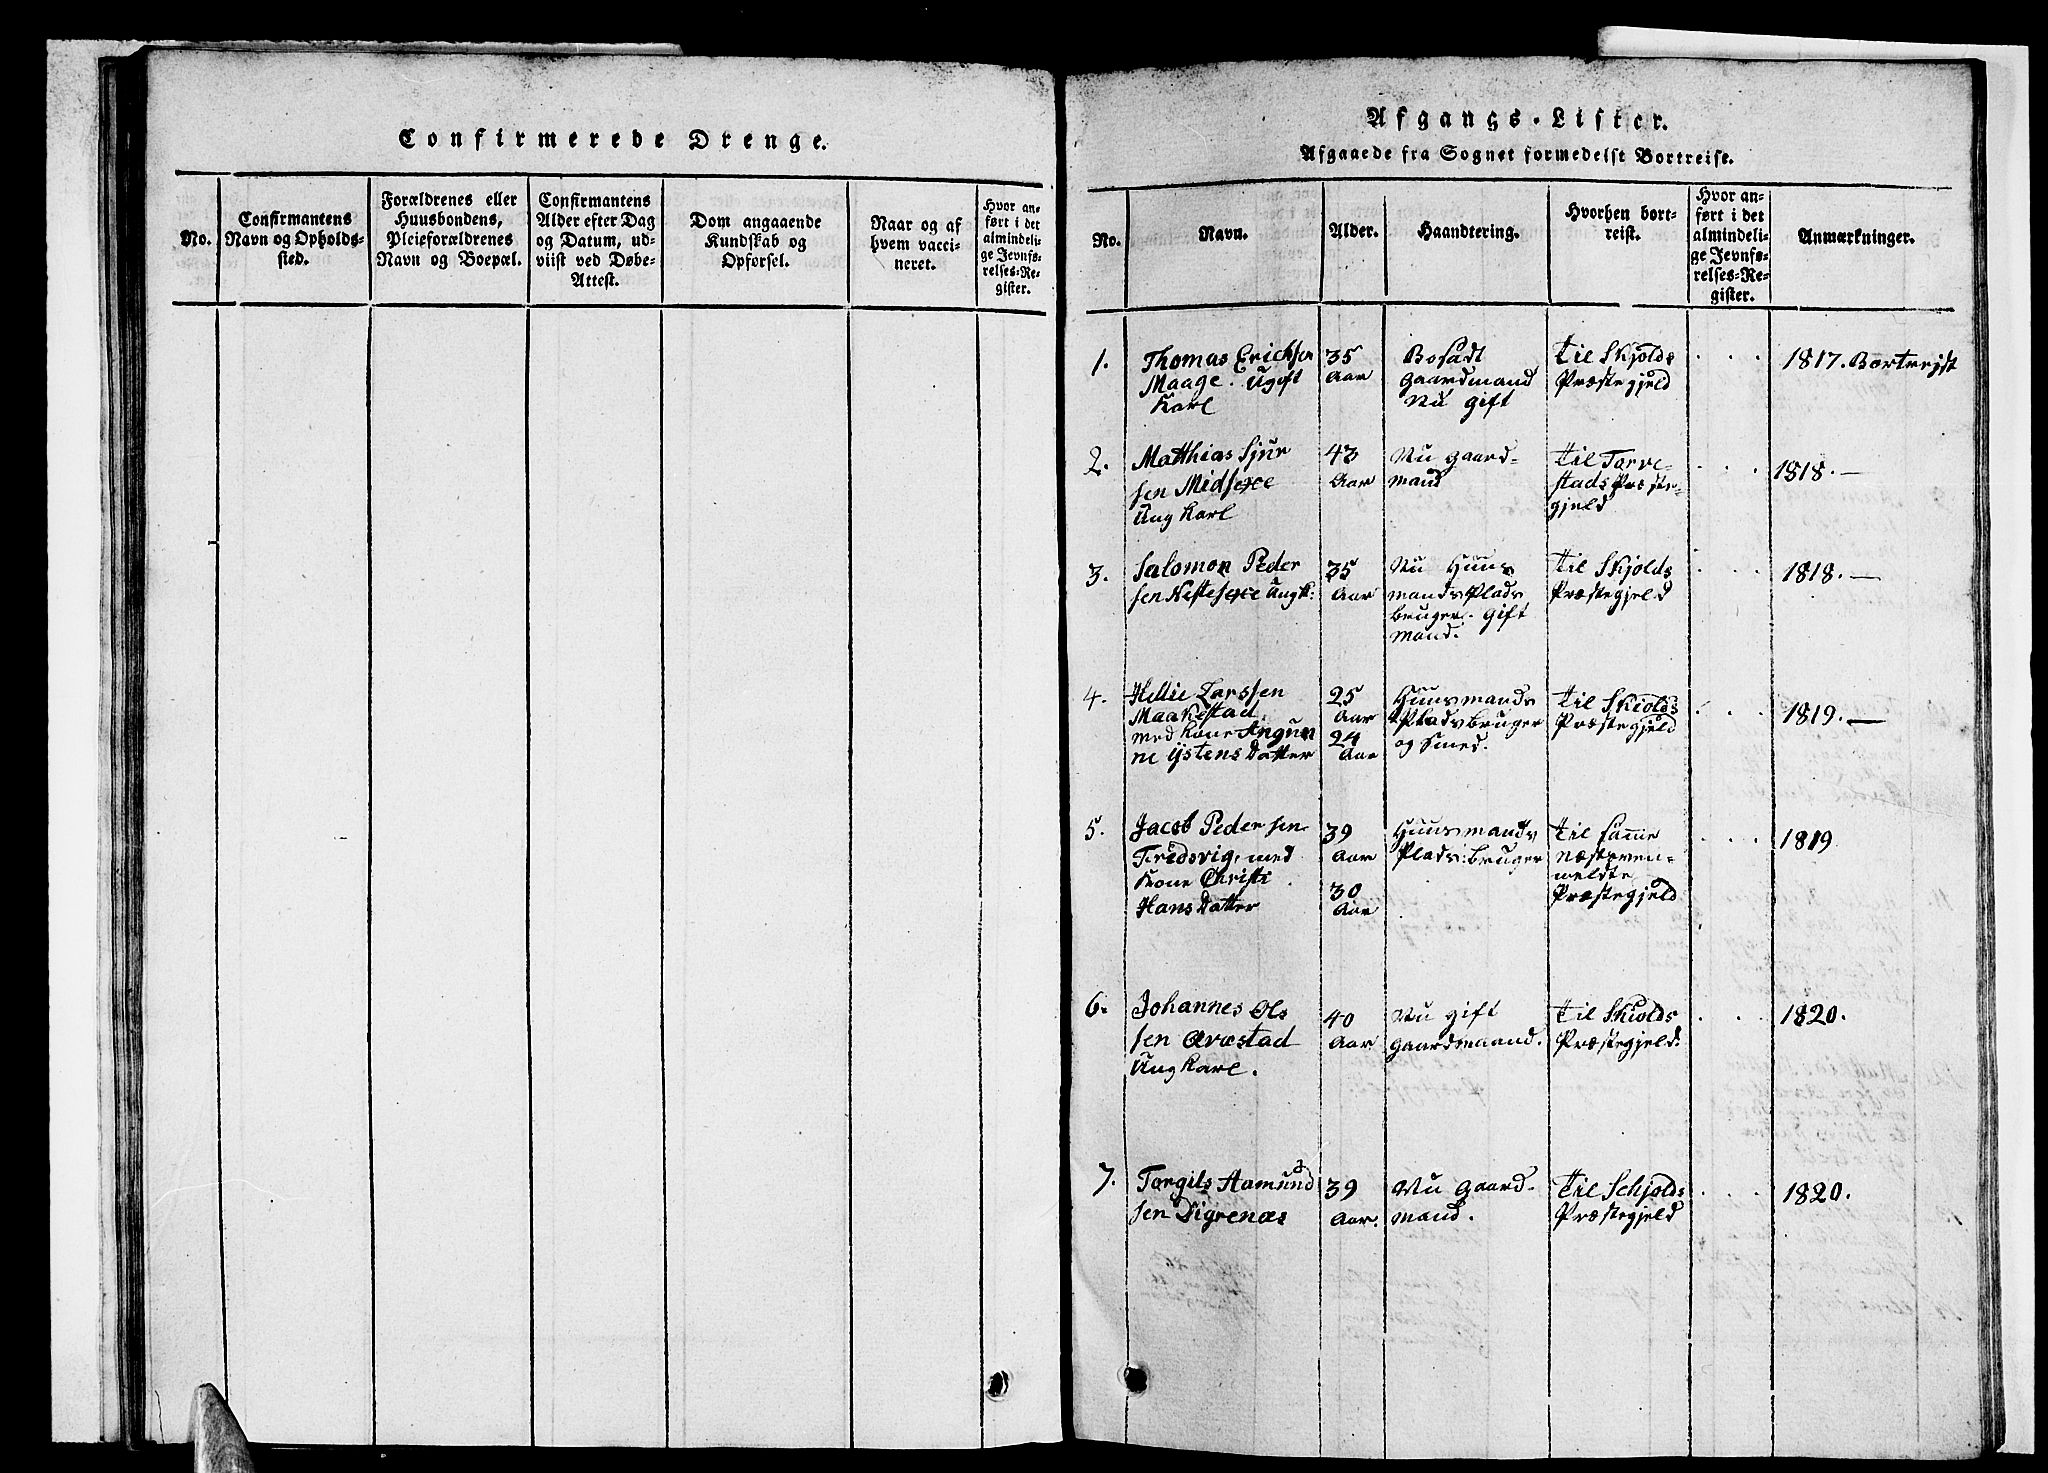 Confirmerede Drenge.
No.
Confirmantens
Navn og Opholds-
sted.
Forældrenes eller
Huusbondens,
Pleieforældrenes
Navn og Boepæl.
Confirmantens
Alder efter Dag
og Datum, ud-
viist ved Døbe-
Attest.
Dom angaaende
Kundskab og
Opførsel.
Naar og af
hvem vacci-
neret.
Hvor an-
ført i det
almindeli-
ge Jevnfø-
relses-Re-
gister.
Afgangs-Lister.
Afgaaede fra Sognet formedelst Bortreise.
No.
Navn.
Alder.
Haandtering.
Hvorhen bort-
reist.
Hvor an-
ført i det
almindeli-
ge Jevnfø-
relses-Re-
gister.
Anmærkninger.
1.
Thomas Erichsen
Maage. Ugift
Karl
35
Aar
Bosadt
Gaardmand
Nu gift
Til Skjolds
Præstegjeld
1817. Bortrejst
2.
Matthias Sjur
sen Midsexe
Ung Karl
43
Aar
Nu gaard-
mand
Til Torve-
stads Præste-
gjeld
1818. —
3.
Salomon Peder
sen Nestesexe Ungk:
35
Aar
Nu Huus
mands Plads
bruger. Gift
Mand.
Til Skjolds
Præstegjeld
1818. —
4.
Hellie Larssen
Maakestad,
med Kone Angun
ne Ystens Datter
25
Aar
24
Aar
Huusmands
Pladsbruger
og Smed.
Til Skiolds
Præstegjeld
1819. —
5.
Jacob Pedersen
Tredsvig, med
Kone Christi
Hans Datter
39
Aar
30
Aar
Huusmands
Plads:bruger
Til samme
næstoven-
meldte
Præstegjeld
1819
6.
Johannes Ols
sen Aræstad
Ung Karl.
40
Aar
Nu gift
gaardmaand.
Til Skiolds
Præstegjeld.
1820.
7.
Torgils Aamund
sen Digrenæs
39
Aar.
Nu Gaard-
mand.
Til Schjolds
Præstegjeld
1820.